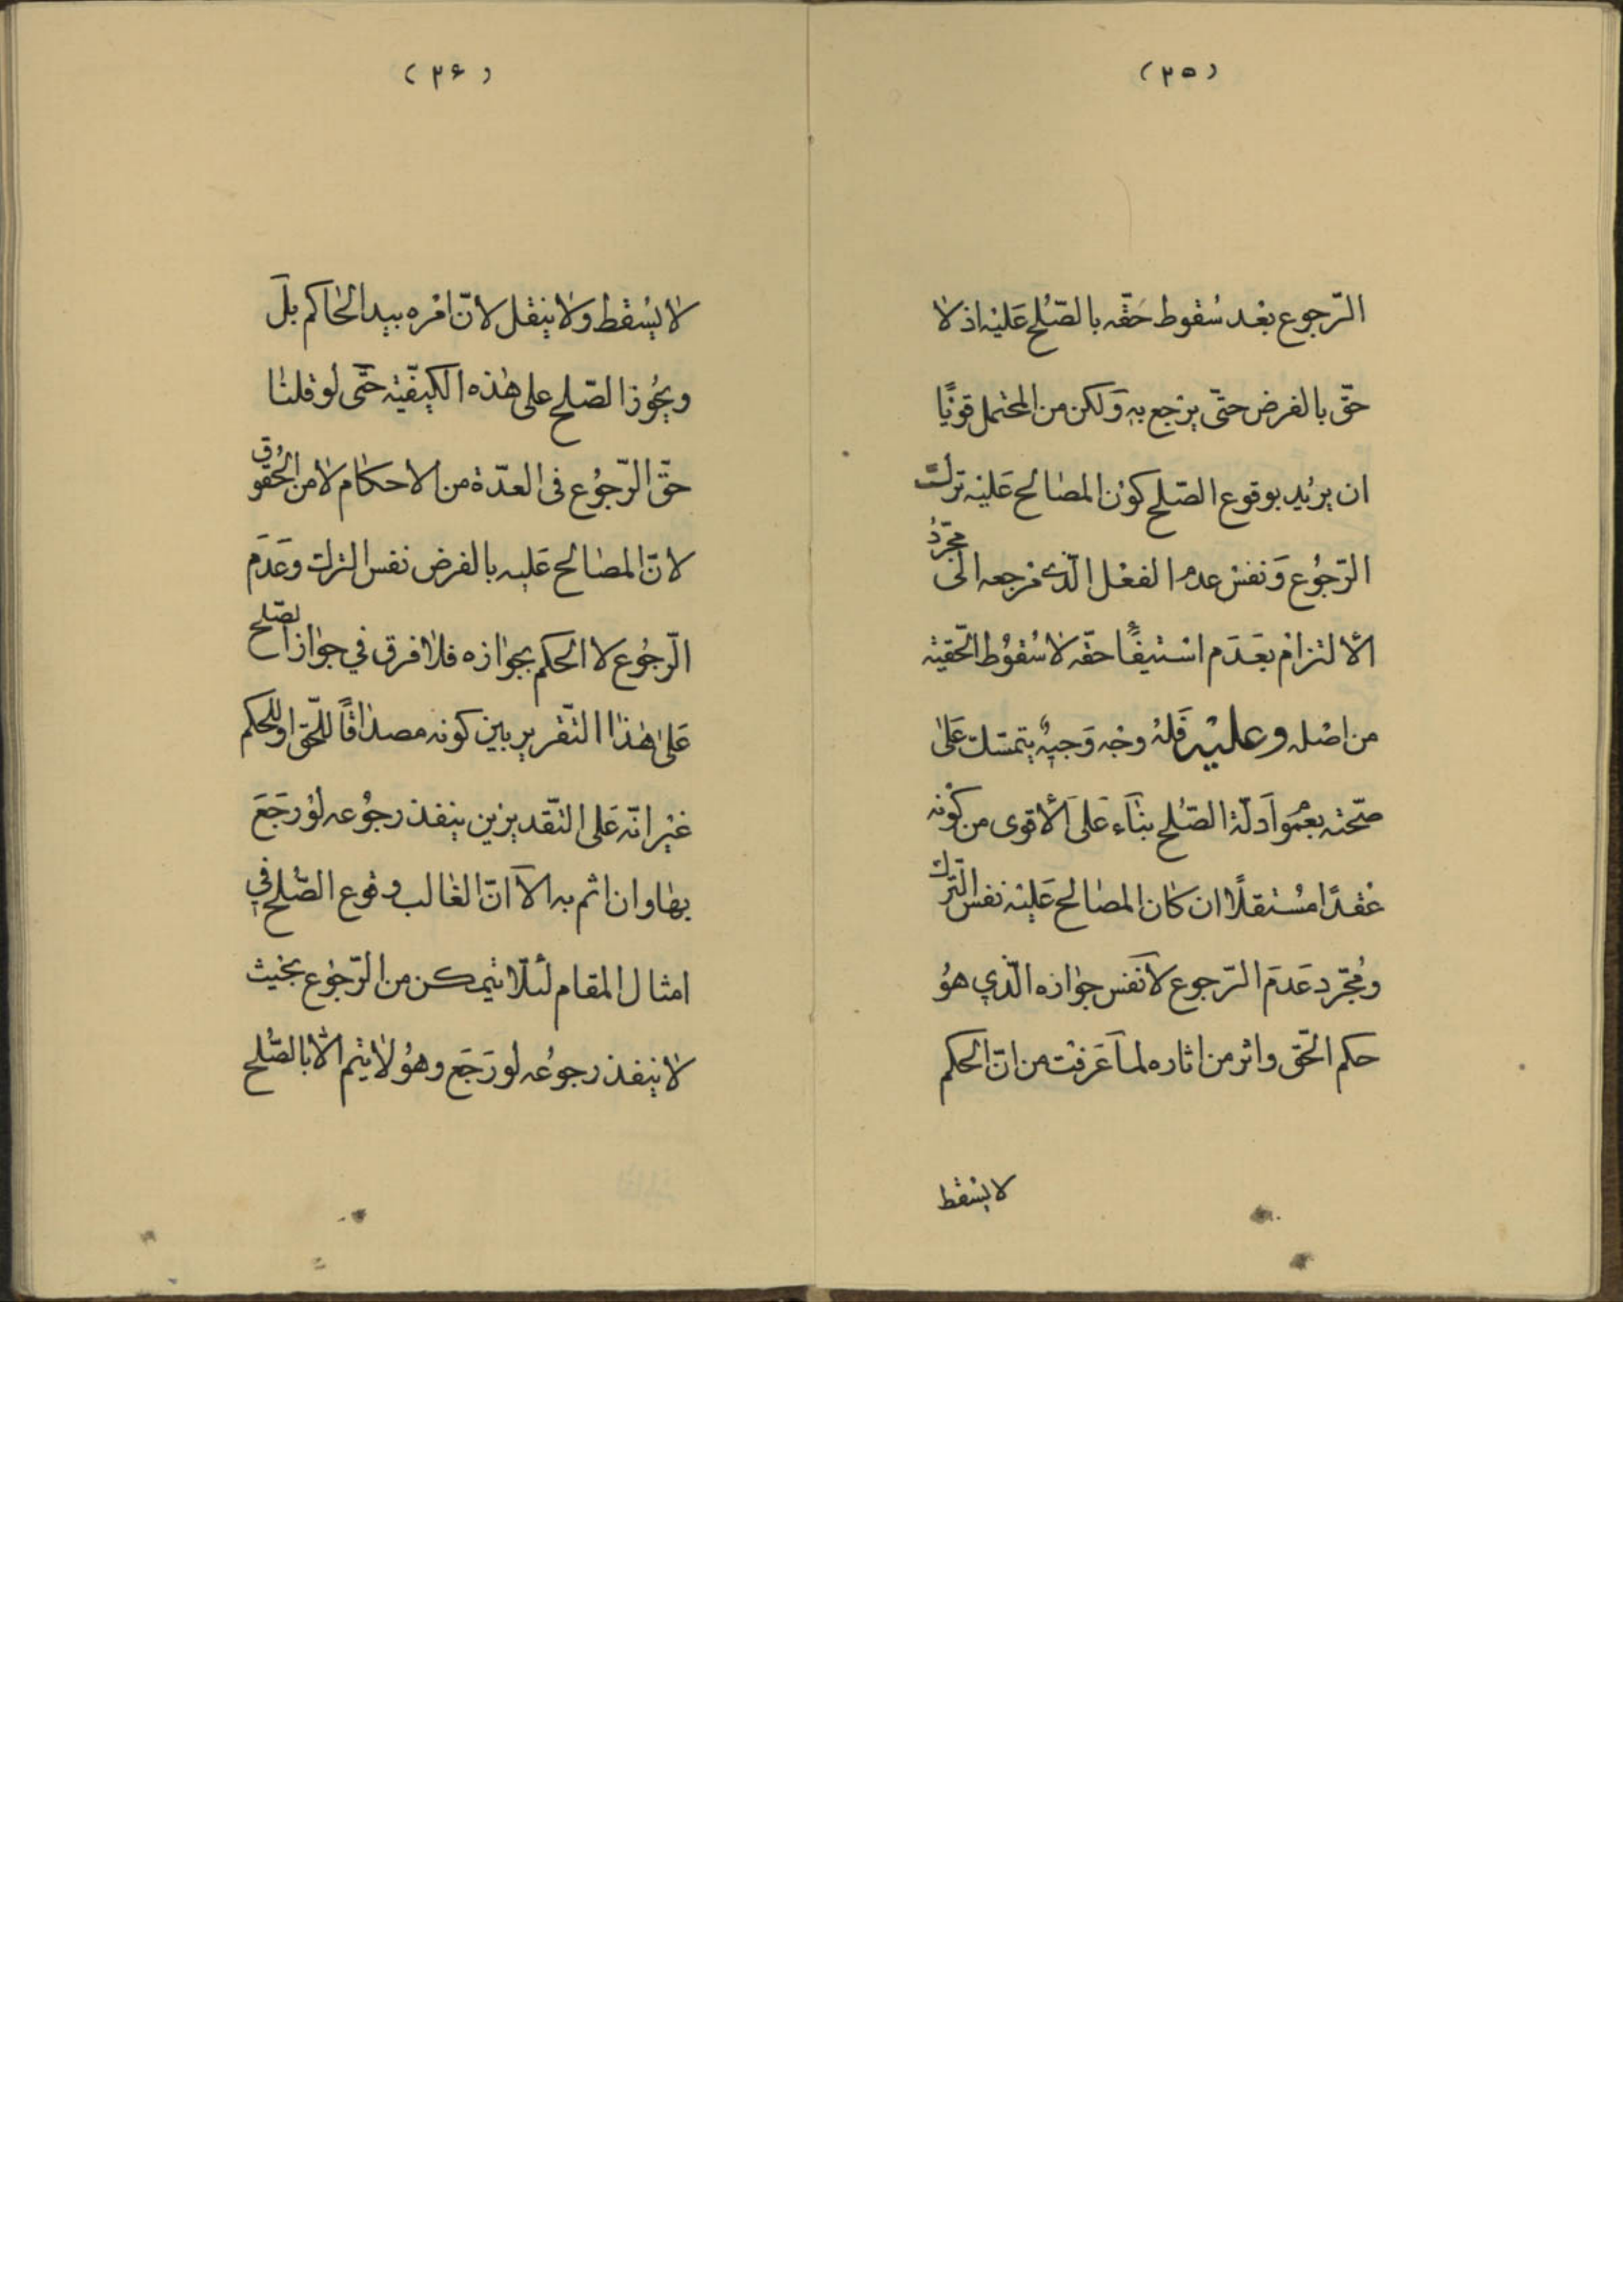 (٢٥)
الرّجوع بعْد سُقوط حَقّه بالصّلح عَليْه اذ لا
حقّ بالفرض حتّى يرْجع به وَلكن من المحتمل قويًّا
ان يريْد بوقوع الصّلح كوْن المصالح عَليْه ترك
الرّجوُع وَنفسْ عدم الفعْل الّذى مرجعه الى مجرّد
الالتزام بعَدَم اسْتيفاء حقّه لا سُقوُط الحّقيّه
من اصْله وعليْه فَلهُ وجْه وَجيهٌ يتمسّك عَلى
صحّته بعموم اَدلّة الصّلح بنآء عَلى الاقوى من كوْنه
عقْدًا مُستقلًا ان كان المصالح عَليْه نفس التّرك
ومُجّرد عَدمَ الرّجوع لا نَفس جوازه الّذي هوُ
حكم الحقّ واثر من اثاره لما عَرفْت من انّ الحكم
لا يسْقط
(٢۶)
لا يسْقط ولا ينقل لانّ امْره بيد الحاكم بلَ
ويجُوز الصّلح على هذه الكيفيّة حتّى لو قلنا
حقّ الرّجوُع فى العدّة من الاحكام لا من الحُقوق
لانّ المصالح عَليه بالفرض نفس الترك وعَدَم
الرّجوُع لا الحكم بجوازه فلا فرق في جواز الصّلح
عَلى هذا التّقرير بين كونه مصداقًا للحّق او للحكم
غيْر انّه عَلى التقديريْن ينفذ رجوُعه لوْ رجَعَ
بها وان اثم به الّا انّ الغالب وقوع الصّلح في
امثال المقام لئلّا يتمكن من الرّجوْع بحيْث
لا ينفذ رجوُعه لو رَجَع وهوُ لا يتم الّا بالصّلح